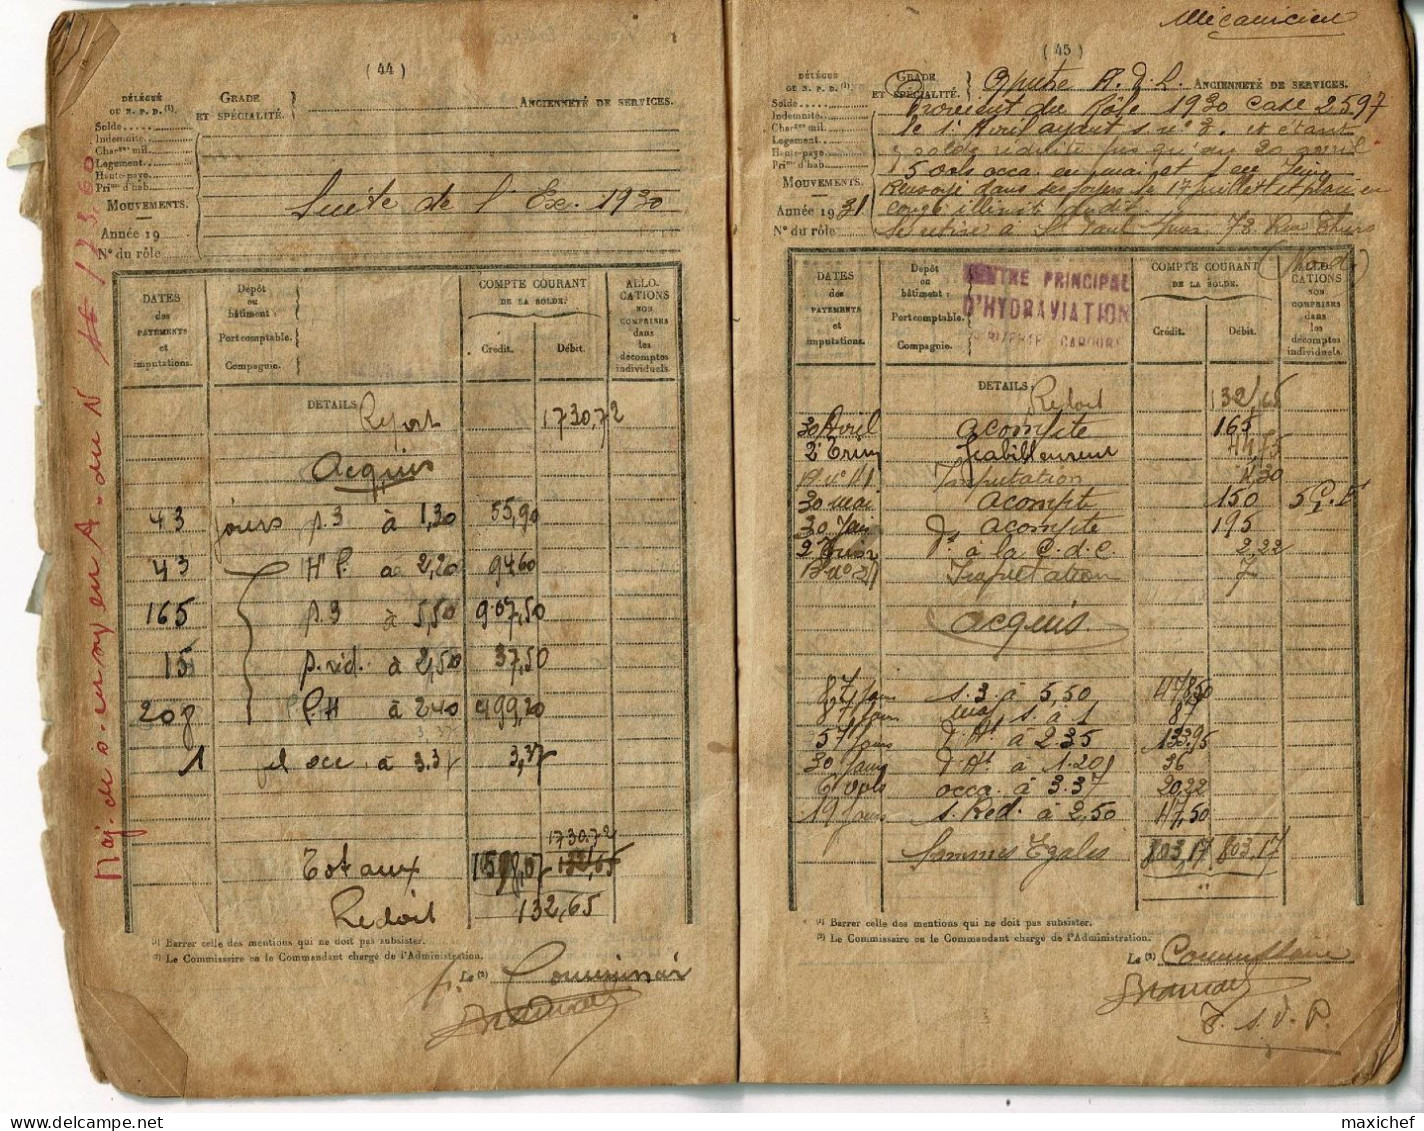 ( 44 )
DÉLÉGUÉ
OU N. P. D. (1)
GRADE
ET SPÉCIALITÉ.
ANCIENNETÉ DE SERVICES.
Solde
Indemnité
Char^ses mil.
Logement
Haute-paye
Prim^es d'hab
MOUVEMENTS.
Année 19
N° du rôle
Suite de l'Ex. 1930
DATES
des
PAYEMENTS
et
imputations.
Dépôt
ou
bâtiment :
Port comptable.
Compagnie.
COMPTE COURANT
DE LA SOLDE.
Crédit.
Débit.
ALLO-
CATIONS
NON
COMPRISES
dans
les
décomptes
individuels.
DETAILS
Report 1730,72
Acquis
43 jours p.3 à 1,30 55,90
43 H P. à 2,20 94 60
165 p.3 à 5,50 907,50
15 p. réd. à 2,50 37,50
208 P.H à 2.40 499,20
1 à 3.37 3,37
1730.72
Totaux 1598,07 132,65
Redoit 132,65
(1) Barrer celle des mentions qui ne doit pas subsister.
(2) Le Commissaire ou le Commandant chargé de l'Administration.
Le (2) Commissaire
Mécanicien
( 45 )
DÉLÉGUÉ
OU N. P. D. (1)
GRADE
ET SPÉCIALITÉ.
ANCIENNETÉ DE SERVICES.
Solde
Indemnité
Char^ses mil.
Logement
Haute-paye
Prim^es d'hab
MOUVEMENTS.
Année 1931
N° du rôle
Provient du Rôle 1930 case 2597
le 1 Avril ayant s. n° 3. et étant
à solde réduite jusqu'au 20 avril
5 vols occa. en mai et 1 en Juin
Renvoyé dans ses foyers le 17 juillet et placé en
congé illimité dudit
Se retire à S^t Paul 73 Rue Thiers
(Nord)
DATES
des
PAYEMENTS
et
imputations.
Dépôt
ou
bâtiment :
Port comptable.
Compagnie.
CENTRE PRINCIPAL
D'HYDRAVIATION
COMPTE COURANT
DE LA SOLDE.
Crédit.
Débit.
ALLO-
CATIONS
NON
COMPRISES
dans
les
décomptes
individuels.
DETAILS
Redoit 132,65
30 Avril acompte 165
2^e Trim habillement 44,75
Imputation 4,30
30 mai acompte 150
30 Juin d° acompte 195
2^e Trim d° à la C.d.C. 2,22
Imputation 7
acquis
87 jours s. 3 à 5,50 478,50
87 jours maj s. à 1 87
57 jours à 2.35 133.95
30 jours à 1.20 36
6 vols occa. à 3.37 20,22
19 jours s. Red. à 2,50 47,50
Sommes Egales 803,17 803,17
(1) Barrer celle des mentions qui ne doit pas subsister.
(2) Le Commissaire ou le Commandant chargé de l'Administration.
Le (2) Commissaire
T. S. V. P.
Maj. de s. en mer en A. du N
maxichef